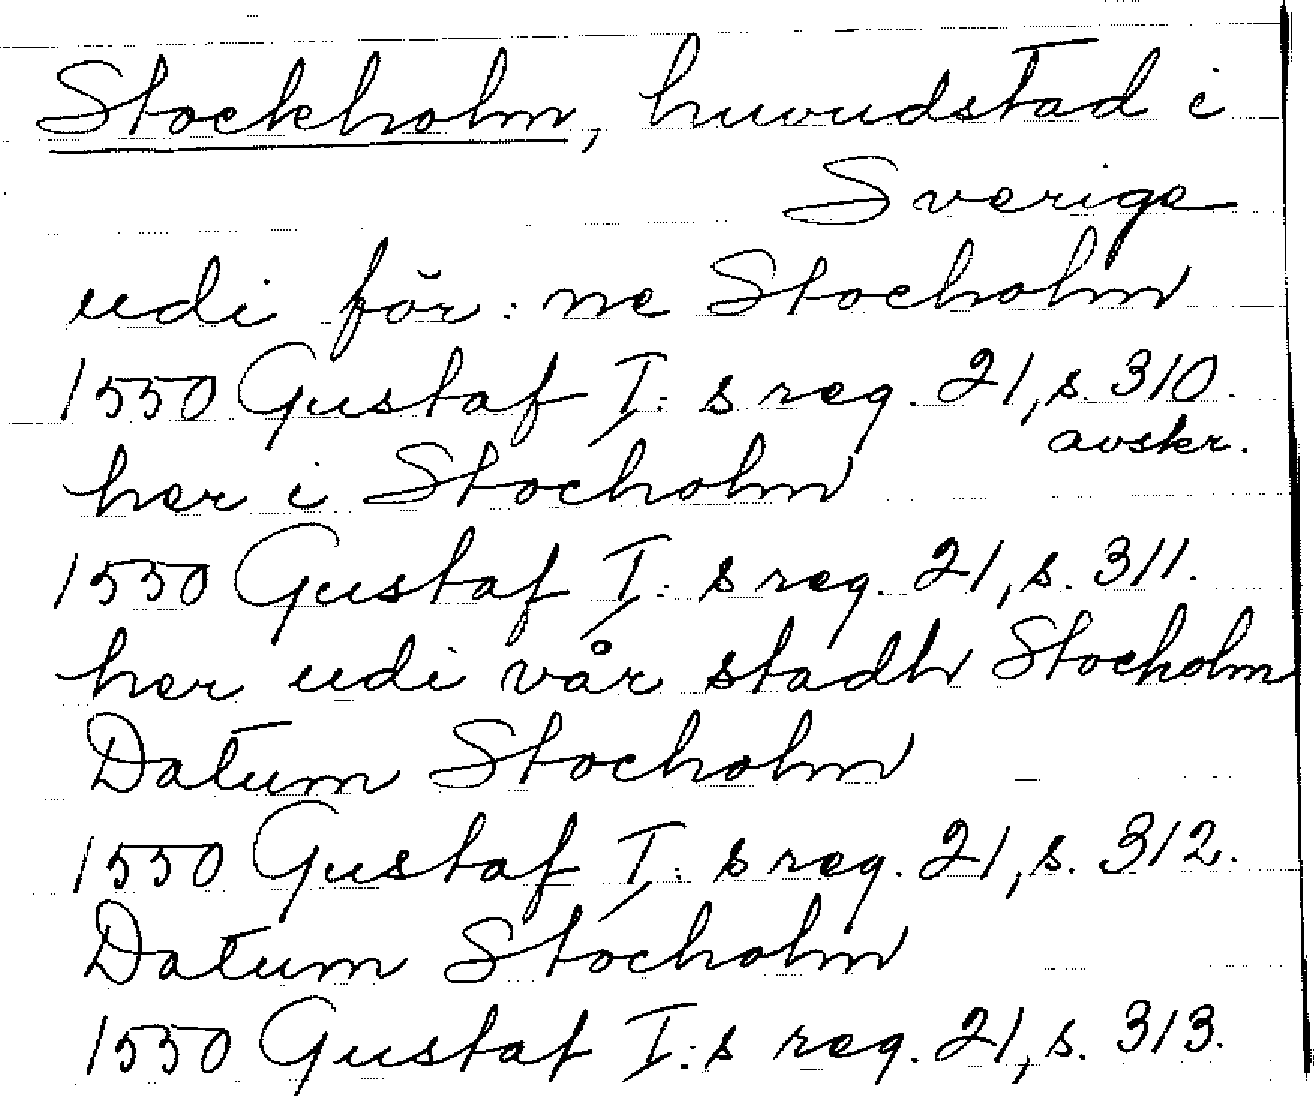 Stockholm, huvudstad i
Sverige
udi för: ne Stocholm
1550 Gustaf I: s reg. 21, s. 310.
avskr.
her i Stocholm
1550 Gustaf I: s reg. 21, s. 311.
her udi vår stadh Stocholm
Datum Stocholm
1550 Gustaf I: s reg. 21, s. 312.
Datum Stocholm
1550 Gustaf I: s reg. 21, s. 313.